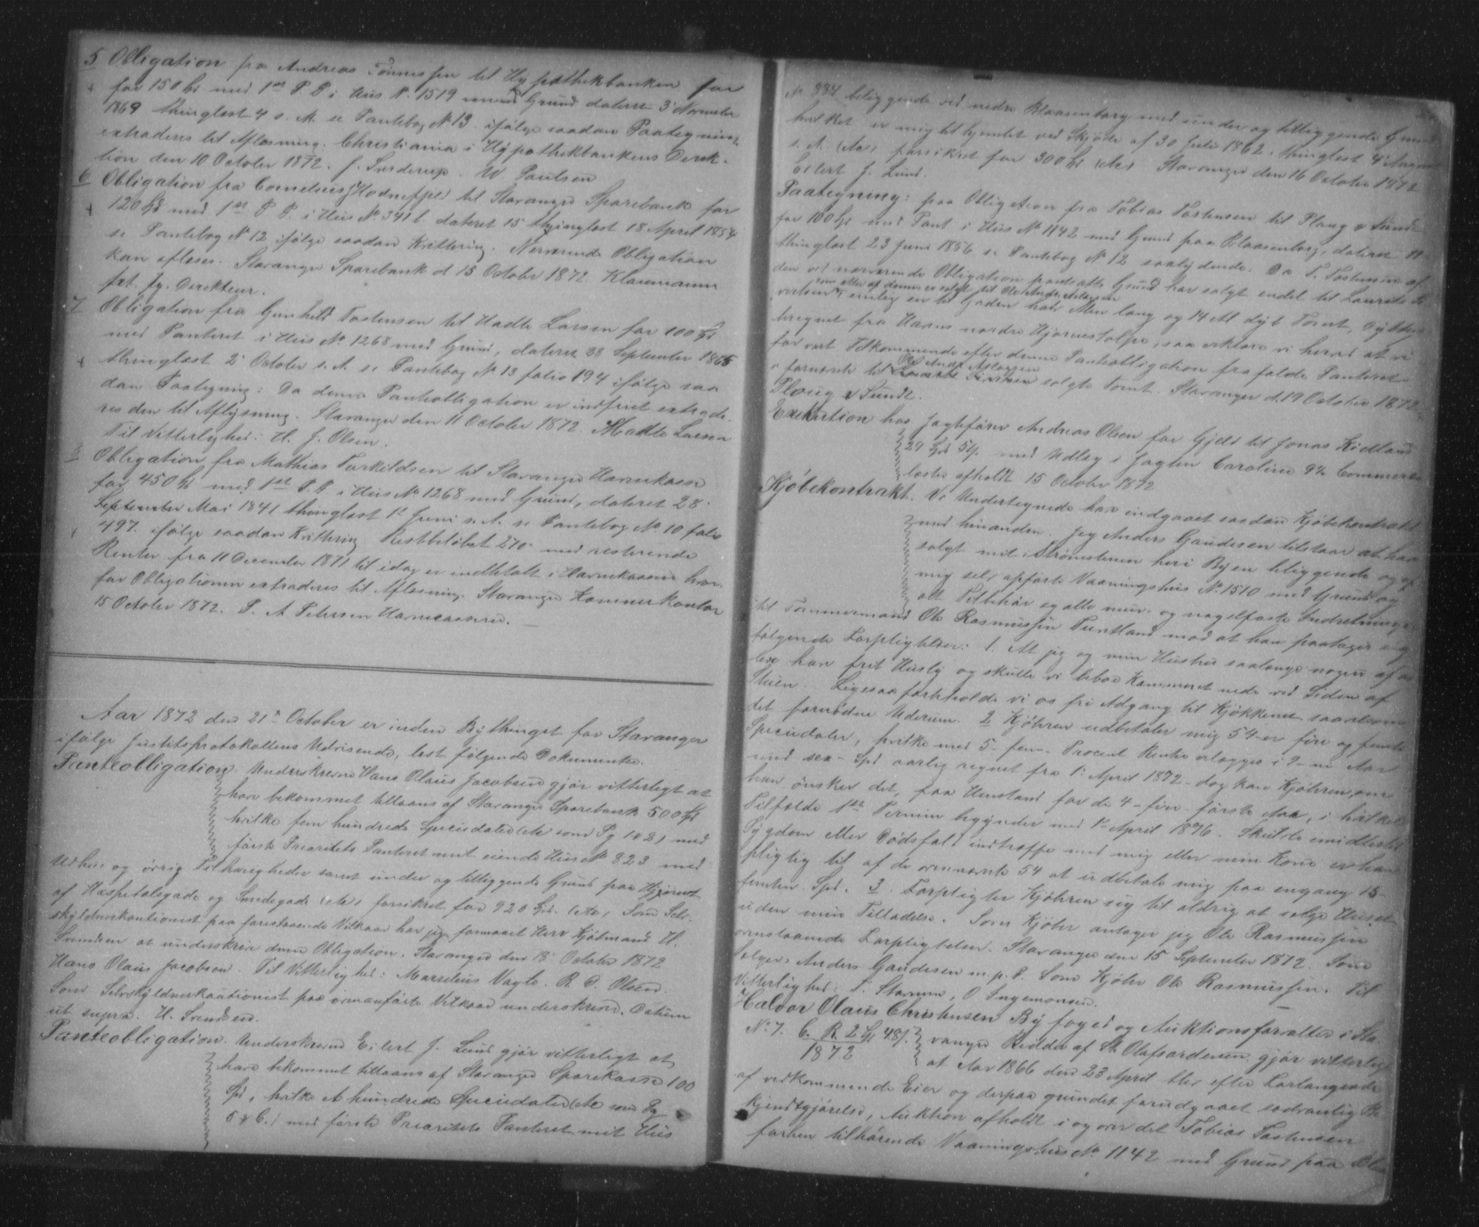 5 Obligation fra Andreas Tønnessen til Hypothekbanken for
for 150 Spd med 1ste P. P. i Huus No 1519 med Grund dateret 3 November
1869 thinglæst 4 s. M. se Pantebog No 13 ifølge saadan Paategning
extraderes til Aflæsning. Christiania i Hypothekbankens Direk-
tion den 10 October 1872. J. Sverdrup. W Paulsen
6 Obligation fra Cornelius Hodnefjel til Stavanger Sparebank for
120 Spd med 1ste P. P. i Huus No 391 b. dateret 15 thinglæst 18 April 1854
se Pantebog No 12 ifølge saadan Kvittering. Nærværende Obligation
kan aflæses. Stavanger Sparebank d 15 October 1872. Klausmann
fxt. Jg. Direkteur.
7 Obligation fra Gunhild Tostensen til Madle Larsen for 100 Spd
med Panteret i Huus No 1268 med Grund, dateret 28 September 1865
thinglæst 2 October s. A. se Pantebog No 13 folio 194 ifølge saa
dan Paategning: Da denne Panteobligation er indfriet extrade-
res den til Aflysning. Stavanger den 11 October 1872. Madle Larsen
Til Vitterlighed: H. J. Olsen.
8 Obligation fra Mathias Torkildsen til Stavanger Havnekasse
for 450 Spd med 1ste P. P. i Huus No 1268 med Grund, dateret 28
September Mai 1841 thinglæst 1ste Juni s. A. se Pantebog No 10 folio
497. ifølge saadan Kvittering Restbeløbet 270 med resterende
Renter fra 11 December 1871 til idag er indbetalt i Havnekassen hvor-
for Obligationen extraderes til Aflæsning. Stavanger Kæmnerkontor
15 October 1872. P. A. Petersen Havnekasserer.
Aar 1872 den 21de October er inden Bythinget for Stavanger
ifølge Justitsprotokollens Udvisende, læst følgende Dokumenter.
Panteobligation. Underskrevne Hans Olaus Jacobsen gjør vitterligt at
have bekommet tillaans af Stavanger Sparebank 500 Spd
hvilke fem hundrede Speciedaler (etc som Pg 1 & 2) med
første Prioritets Panteret mit eiende Huus No 323 med
Udhus og øvrig Tilhørigheder samt under og tilliggende Grund paa Hjørnet
af Hospitalsgade og Smedegade (etc) forsikret for 920 Spd. (etc) Som Selv-
skyldnerkautionist paa foranstaaende Vilkaar har jeg formaaet Herr Kjøbmand H.
Svendsen at underskrive denne Obligation. Stavanger den 18 October 1872
Hans Olaus Jacobsen. Til Vitterlighed: Marselius Vagle. R. D. Olsen.
Som Selvskyldnerkautionist paa ovenanførte Vilkaar underskreves. Datum
ut supra. H. Svendsen.
Panteobligation. Underskrevne Eilert J. Lund gjør vitterligt at
have bekommet tillaans af Stavanger Sparekasse 100
Spd, hvilke Et hundrede Speciedaler (etc som Pg
5 & 6.) med første Prioritets Panteret mit Huus
No 334 beliggende ved nedre Blaasenborg med under og tilliggende Grund
hvilket er mig tilhjemlet ved Skjøde af 30 Juli 1862. thinglæst 4 August
s. A. (etc) forsikret for 300 Spd (etc) Stavanger den 16 October 1872
Eilert J. Lund.
Paategning: paa Obligation fra Tobias Tostensen til Ploug & Sundt
for 100 Spd med Pant i Huus No 1142 med Grund paa Blaasenborg, dateret 11
thinglæst 23 Juni 1856 se Pantebog No 12 saalydende. Da T. Tostensen af
den ved nærværende Obligation pantsatte Grund har solgt endel til Laurits
langs Gaden Alen lang og 14 Al dyb Tomt,
beregnet fra Husets nordre Hjørnestolpe, saa erklære vi herved at vi
for vort Vedkommende efter denne Panteobligation frafalde Panteret
i fornævnte til solgte Tomt. Stavanger d. 19 October 1872
Ploug & Sundt.
Execution hos Jagtfører Andreas Olsen for Gjeld til Jonas Kidland
29 Spd med Udlæg i Jagten Caroline 9½ Commerce-
læster afholdt 15 October 1872
Kjøbekontrakt. Vi Undertegnede have indgaaet saadan Kjøbekontrakt
med hinanden. Jeg Anders Gaudesen tilstaar at have
solgt mit i Strømsteen heri Byen beliggende og af
mig selv opførte Vaaningshuus No 1510 med Grund og
alt Tilbehør og alle mur- og nagelfaste Indretninger
til Tømmermand Ole Rasmussen Tuntland mod at han paatager sig
følgende Forpligtelser: 1. At jeg og min Hustru saalænge nogen af os
leve have frit Husly og skulle vi beboe Kammeret nede ved Siden af
Stuen. Ligesaa forbeholde vi os fri Adgang til Kjøkkenet saavelsom
det fornødne Uderum. 2 Kjøberen udbetaler mig 54-er fire og femti
Speciedaler, hvilke med 5- fem- Procent Rente aflægges i 9- ni Aar
med sex- Spd aarlig regnet fra 1ste April 1872- dog kan Kjøberen, om
han ønsker det, faa Henstand for de 4- fire- første Aar, i hvilket
Tilfælde 1ste Termin begynder med 1ste April 1876. Skulde imidlertid
Sygdom eller Dødsfald indtræffe med mig eller min Kone er han
pligtig til af de ovennævnte 54 at udbetale mig paa engang 15-
femten Spd. 3. Forpligter Kjøberen sig til aldrig at sælge Huset
uden min Tilladelse. Som Kjøber antager jeg Ole Rasmussen
ovenstaaende Forpligtelser. Stavanger den 15 September 1872. Som
Sælger Anders Gaudesen m. p. P. Som Kjøber Ole Rasmussen. Til
Vitterlighed: T. Stamm, O Ingemonsen.
Haldor Olaus Christensen Byfoged og Auktionsforvalter i Sta-
No 7. 6. R. 2 Spd 48 s. vanger Ridder af St. Olafsordenen, gjør vitterligt
1872 at Aar 1866 den 23 April blev efter Forlangende
af vedkommende Eier og derpaa grundet forudgaaet sædvanlig Be-
kjendtgjørelse, Auktion afholdt i og over det Tobias Tostensen
forhen tilhørende Vaaningshuus No 1142 med Grund paa Bl